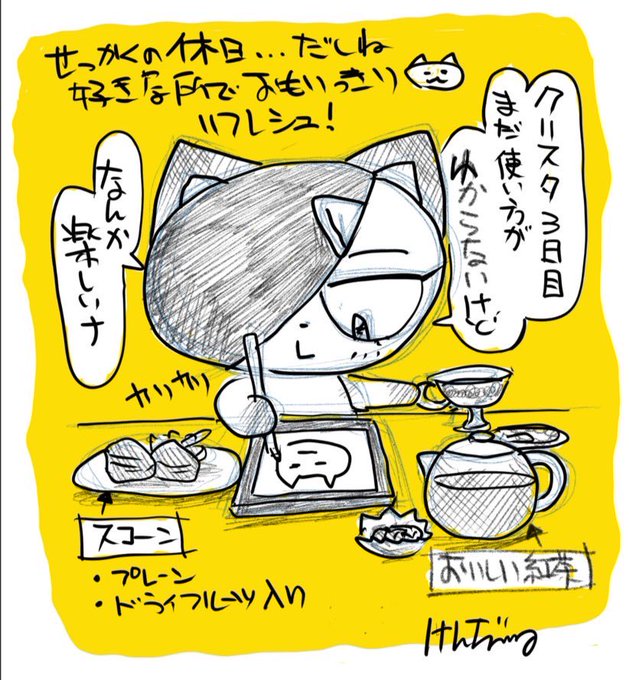 せっかくの休日...だしね
好きな所でおもいっきり
リフレシュ!
クリスタ3日目
まだ使い方が
わからないけど
なんか
楽しいナ
カリカリ
スコーン
・プレーン
・ドライフルーツ入り
おいしい紅茶